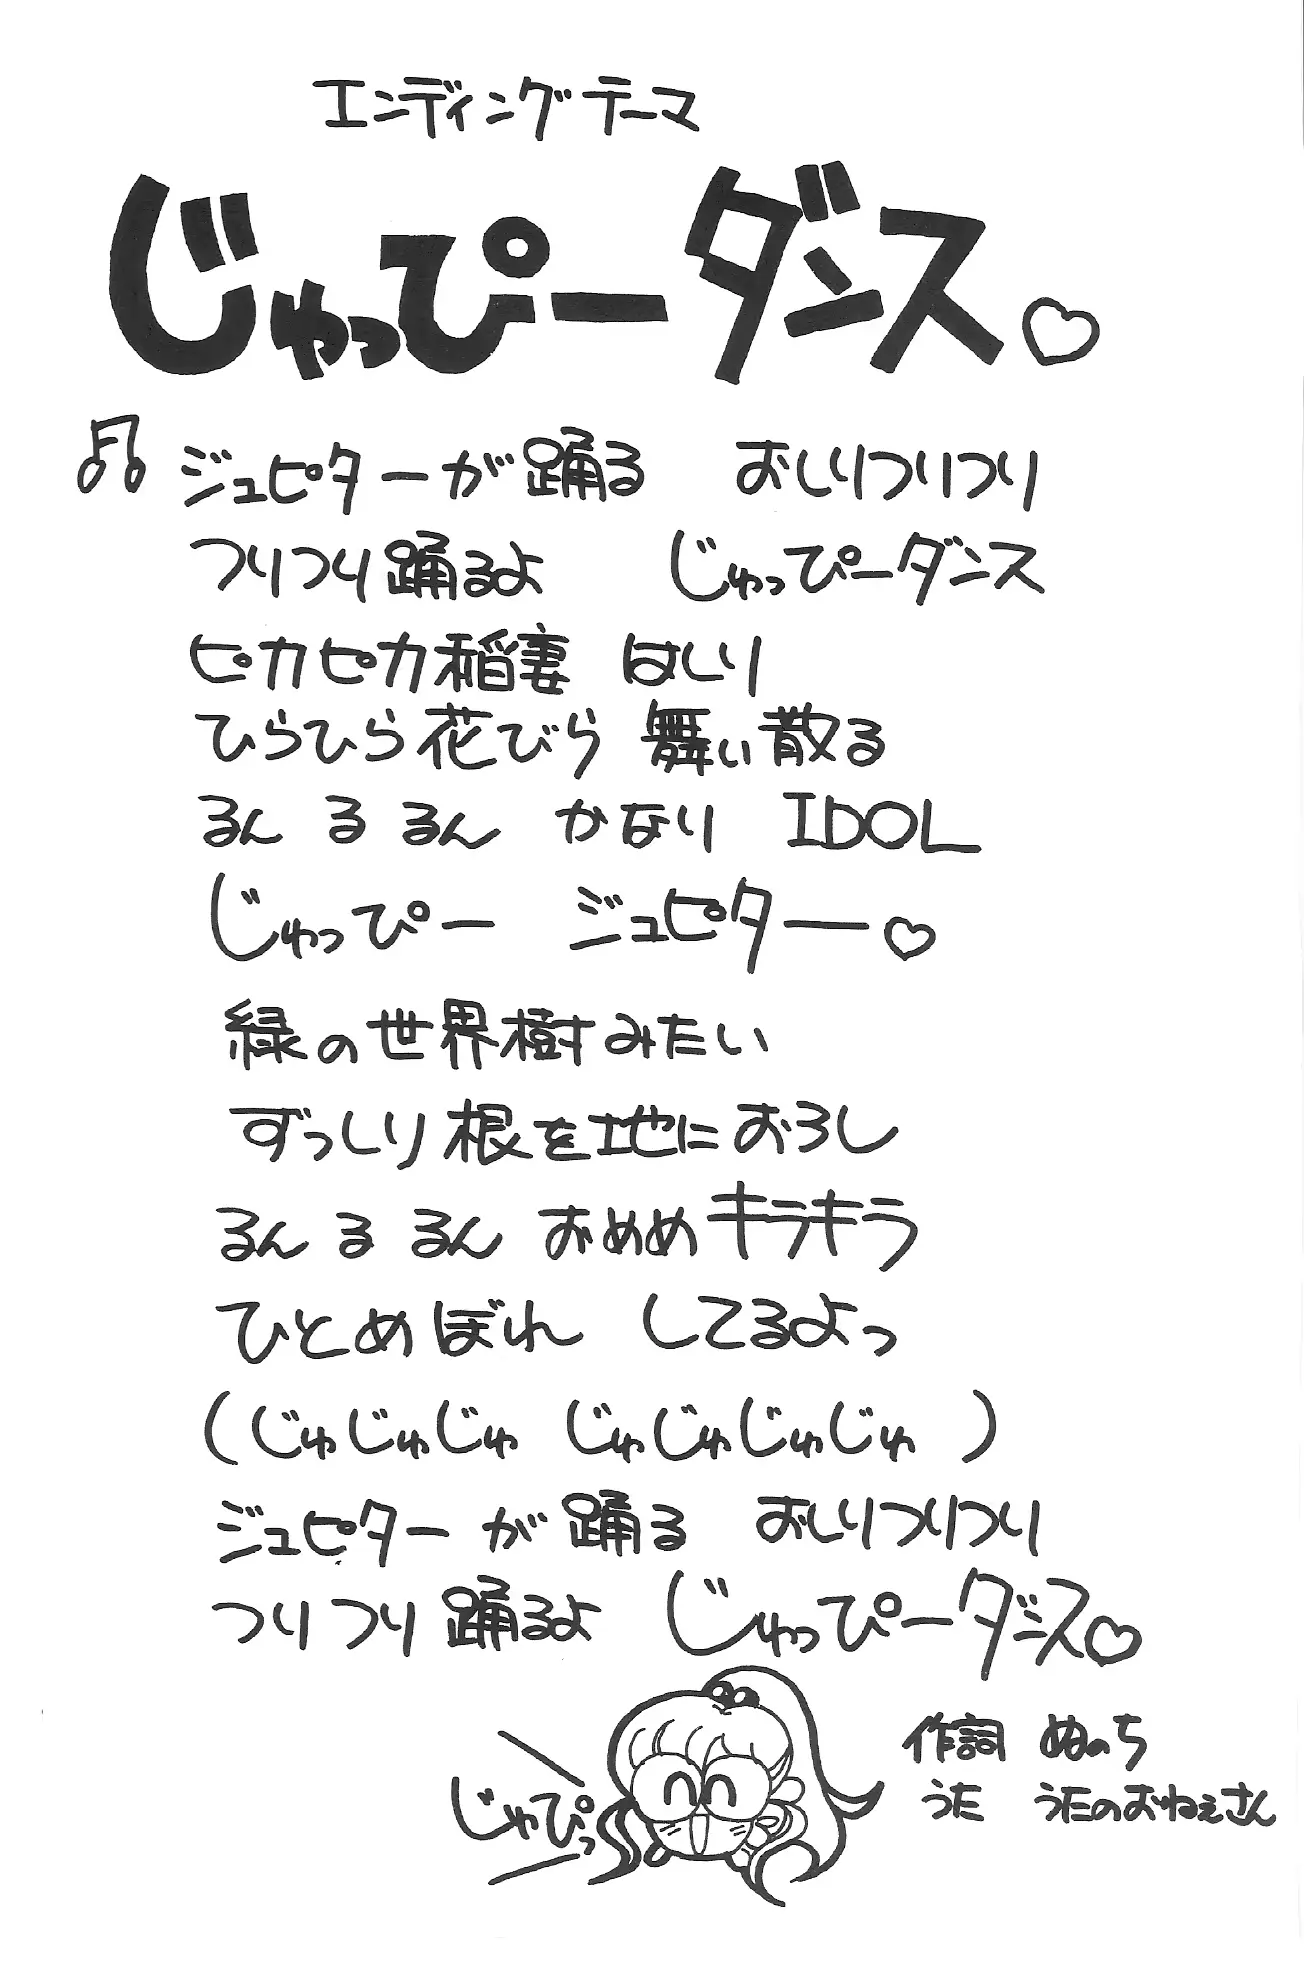 エンディングテーマ
じゅっぴーダンス♡
♫ ジュピターが踊る おしりつりつり
つりつり踊るよ じゅっぴーダンス
ピカピカ稲妻 はしり
ひらひら花びら 舞い散る
るん る るん かなり IDOL
じゅっぴー ジュピター♡
緑の世界樹みたい
ずっしり根を地におろし
るん る るん おめめキラキラ
ひとめぼれ してるよっ
(じゅじゅじゅ じゅじゅじゅじゅ)
ジュピターが踊る おしりつりつり
つりつり踊るよ じゅっぴーダンス♡
じゅぴっ
作詞 ぬのち
うた うたのおねぇさん